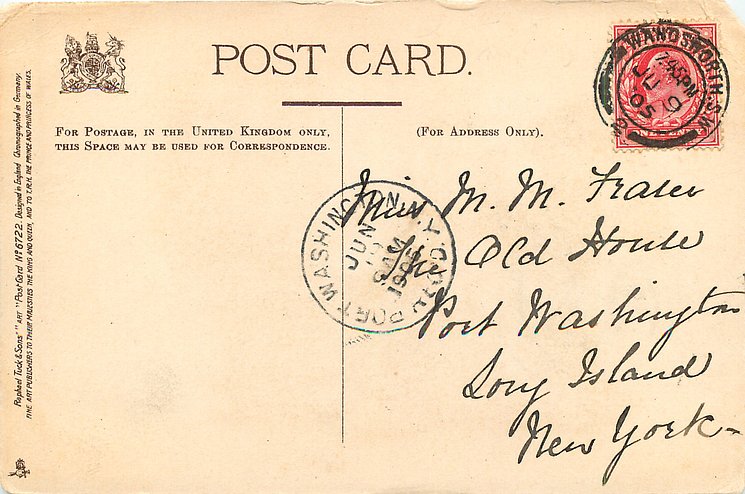 POST CARD.
FOR POSTAGE, IN THE UNITED KINGDOM ONLY,
THIS SPACE MAY BE USED FOR CORRESPONDENCE.
(FOR ADDRESS ONLY).
WANDSWORTH.S.W.
7.45PM
JU 9
05
PORT WASHINGTON, N.Y.
JUN
8AM
1905
REC'D.
Miss M. M. Fraser
The Old House
Port Washington
Long Island
New York
Raphael Tuck & Sons' "ART" Post Card Nº 6722. Designed in England Chromographed in Germany.
THE ART PUBLISHERS TO THEIR MAJESTIES THE KING AND QUEEN, AND TO T.R.H. THE PRINCE AND PRINCESS OF WALES.